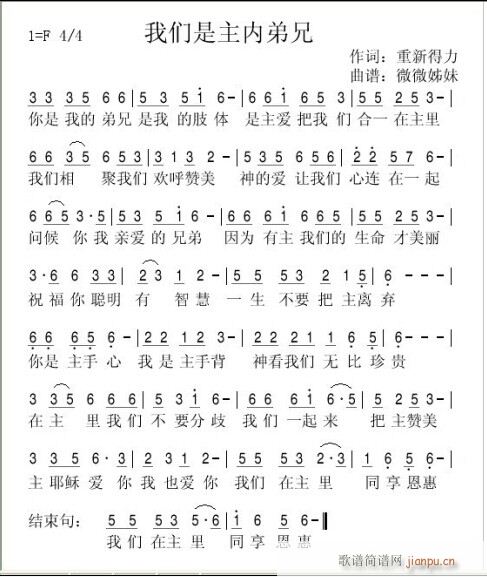 我们是主内弟兄
1=F 4/4
作词：重新得力
曲谱：微微姊妹
3 3 3 5 6 6 | 5 3 5 i 6- | 6 6 i 3 5 3 | 5 5 2 5 3- |
你是我的弟兄是我的肢体 是主爱把我们合一在主里
6 6 3 5 6 5 5 | 3 1 3 2- | 6 6 i 6 i | 2 2 5 7 6- |
我们相 聚我们欢呼赞美 神的爱让我们心连在一起
6 6 5 3·5 | 5 3 5 i 6- | 6 6 i 6 6 | 5 5 2 5 3- |
问候你我亲爱的兄弟 因为有主我们的生命才美丽
3· 6 3 3 | 2 3 1 2- | 5 5 5 3 2 1 5· |
祝福你聪明有 智慧一生不要把主离弃
6 6 6 5 6- | 2 2 2 3 2- | 3 3 2 1 6 5 | 6- - - |
你是主手心 我是主手背 神看我们无比珍贵
3 3 5 3 3 | 2 3 1 2- | 5 5 5 3 6·5 | 3 2 3- |
在主里我们不要分歧我们一起来 把主赞美
3 3 5 6· 3 | 2 3 1 2- | 5 5 5 3 2·3 | 6 2 6- |
主耶稣爱你我也爱你 我们在主里 同享恩惠
结束句： 5 5 5 3 5·6 | i 6 6- - ‖
我们在主里 同享恩惠
歌谱简谱网
jianpu.cn